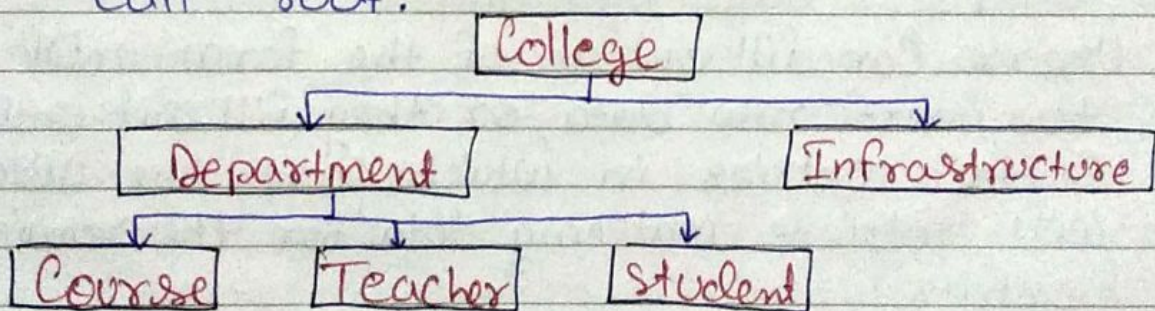 call root.
College
Department Infrastructure
Course Teacher Student